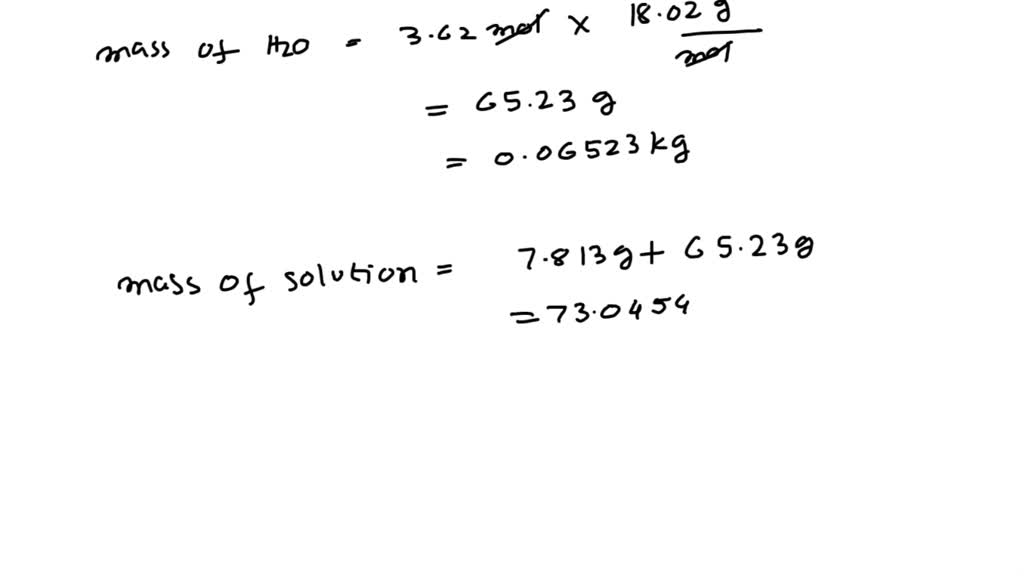 mass of H2O = 3.62 mol × 18.02 g / mol
= 65.23 g
= 0.06523 kg
mass of solution = 7.813g + 65.23g
= 73.0454